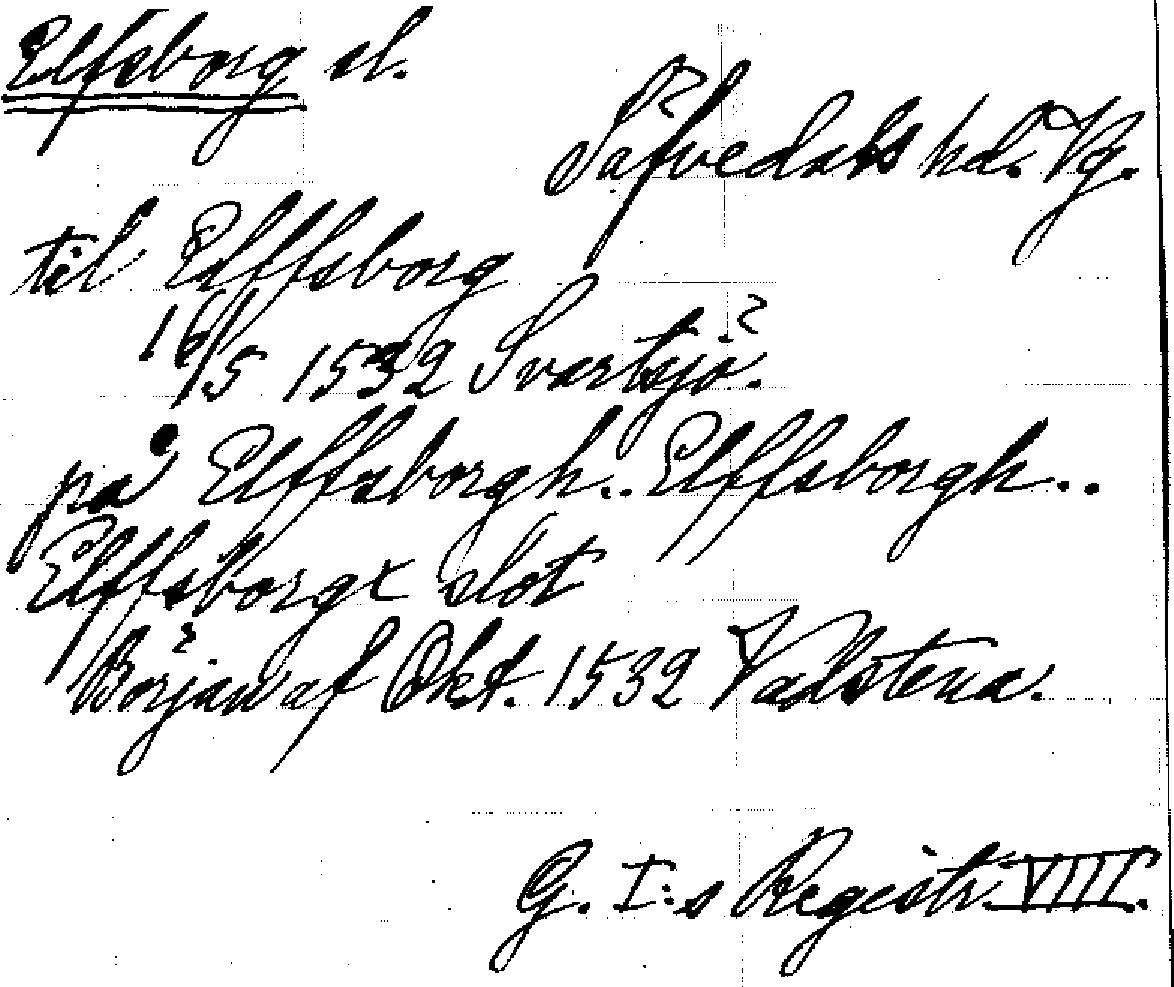 Elfsborg sl.
Säfvedals hd. Vg.
til Elffsborg
16/5 1532 Svartsjö.
på Elffsborgh.. Elffsborgh..
Elffsborgx slot
Början af Okt. 1532 Vadstena.
G. I:s Registr. VIII.